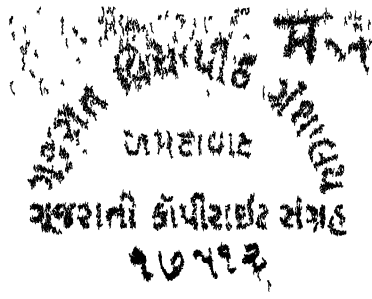 ગૂજરાત વિદ્યાપીઠ ગ્રંથાલય
અમદાવાદ
ગુજરાતી કૉપીરાઈટ સંગ્રહ
૧૭૫૧૨